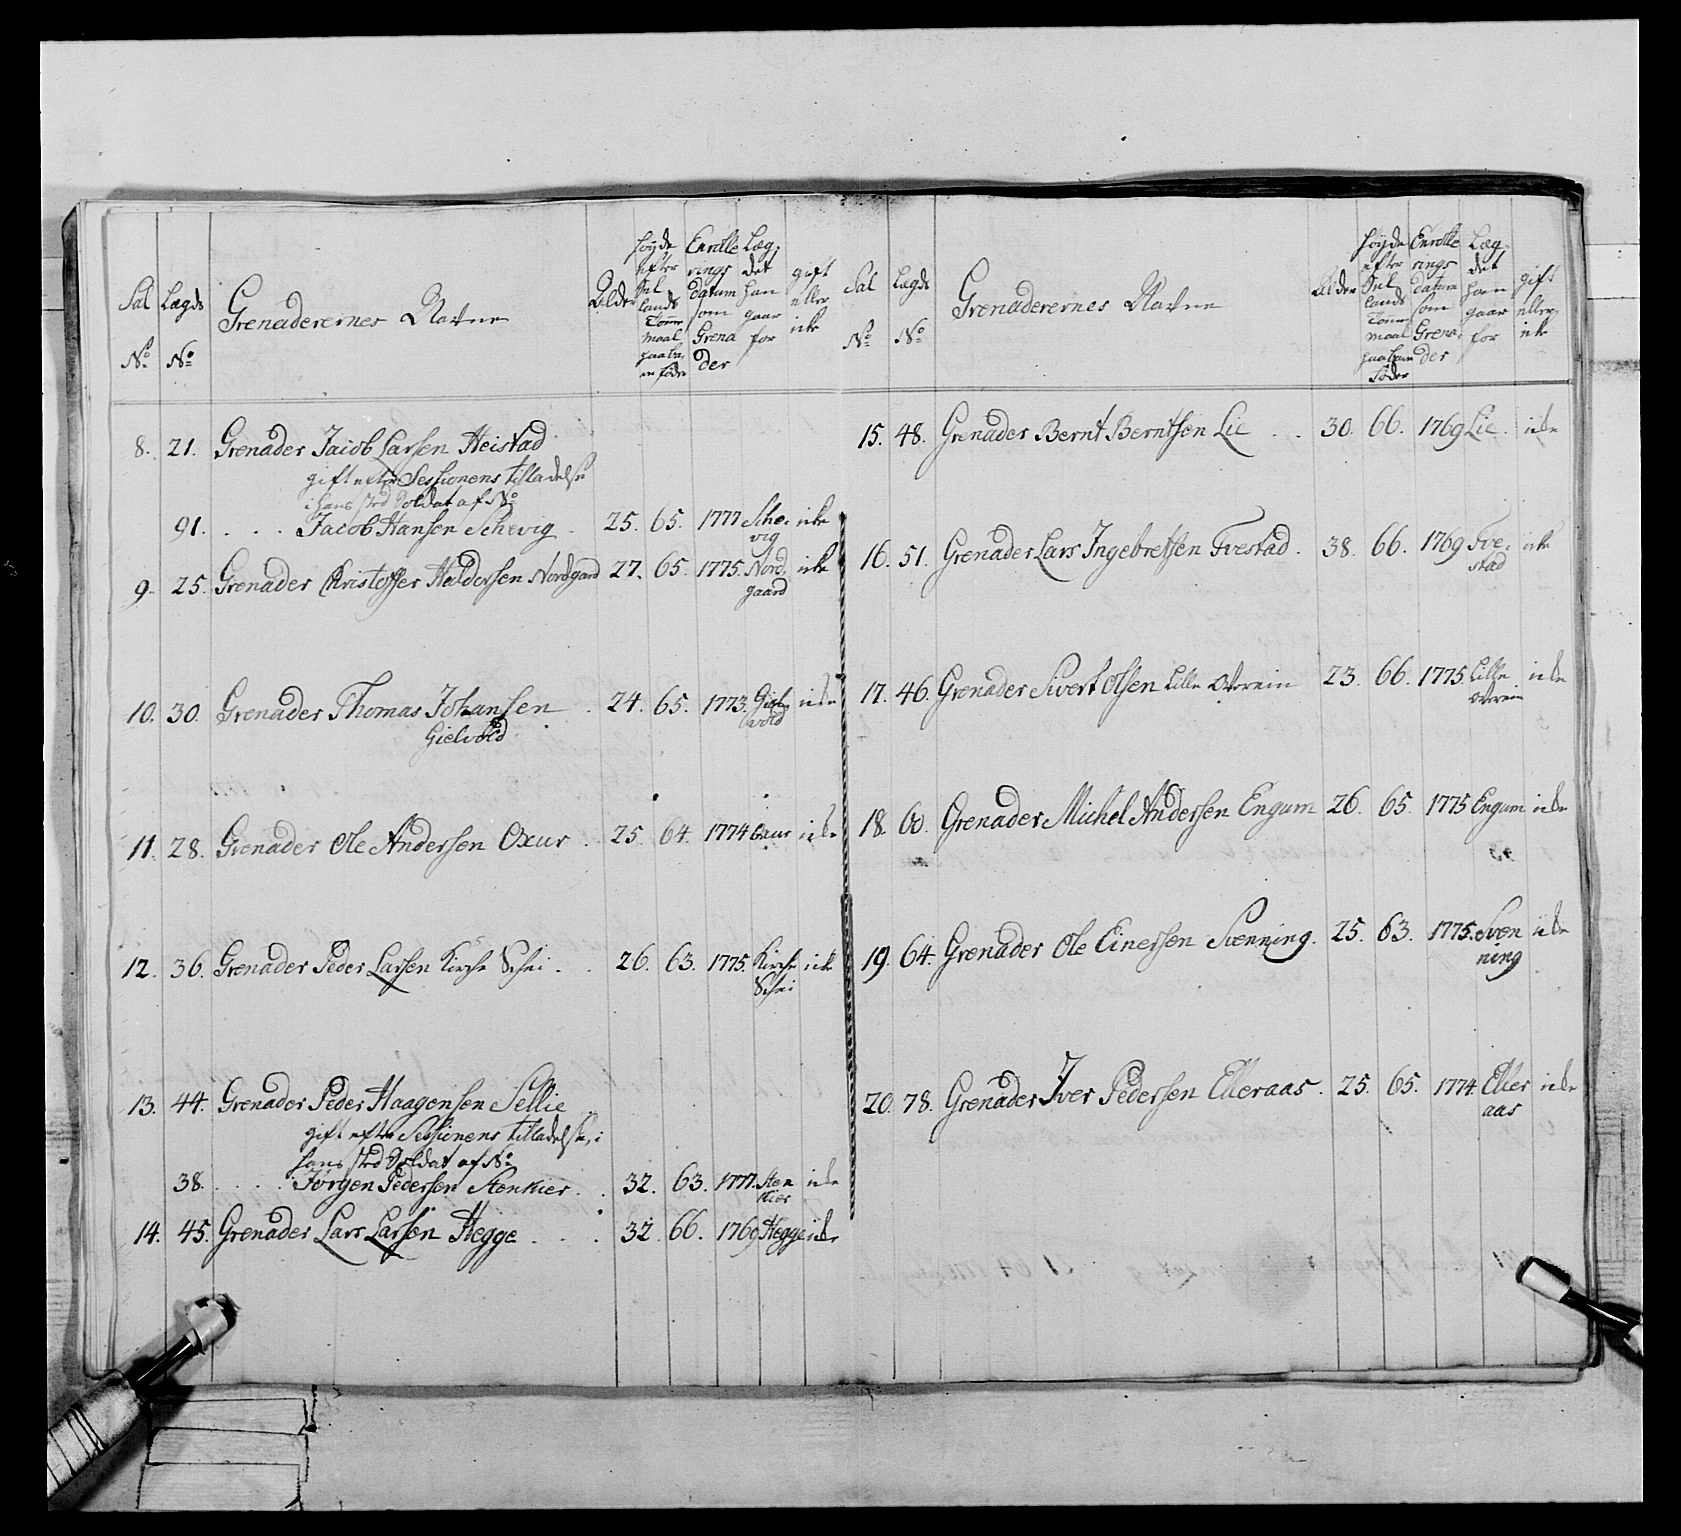 Sal No Lægds No Grenaderernes Navne Alder Høyde efter Sel lands Tomme maal paa bare føder Enrolle rings datum som Grena der Læg det han gaar for gift eller icke
8. 21. Grenader Jacob Larsen Heistad
gift efter Sessionens tilladelse
i hans sted Soldat af No
91. . . . Jacob Hansen Schevig . 25. 65. 1777 Sche. icke
vig
9. 25. Grenader Christoffer Haldorsen Nordgaard 27. 65. 1775. Nord. icke
gaard
10. 30. Grenader Thomas Johansen . 24. 65. 1773. Giel icke
Gielvold vold
11. 28. Grenader Ole Andersen Oxur . 25. 64. 1774 Oxur icke
12. 36. Grenader Peder Larsen Kirche Schei . . 26. 63. 1775. Kirche icke
Schei
13. 44. Grenader Peder Haagensen Sellie
gift efter Sessionens tilladelse, i
hans sted Soldat af No
38. . . . Jørgen Pedersen Stenkier . . 32. 63. 1777. Sten icke
kier
14. 45. Grenader Lars Larsen Hegge . . . 32 66. 1769 Hegge icke
Sal No Lægds No Grenaderernes Navne Alder Høyde efter Sel lands Tomme maal paa bare føder Enrolle rings datum som Grena. der Læg. det han gaar for gift eller icke
15. 48. Grenader Bernt Berntsen Lie . . 30. 66. 1769 Lie. icke
16. 51. Grenader Lars Ingebretsen Tvestad . 38. 66. 1769 Tve. icke
stad
17. 46. Grenader Sivert Olsen Lille Overein 23. 66. 1775. Lille icke
Overein
18. 60. Grenader Michel Andersen Engum 26. 65. 1775 Engum icke
19. 64. Grenader Ole Einersen Svenning. 25. 63. 1775. Sven icke
ning
20. 78. Grenader Iver Pedersen Elleraas . 25. 65. 1774. Eller icke
aas